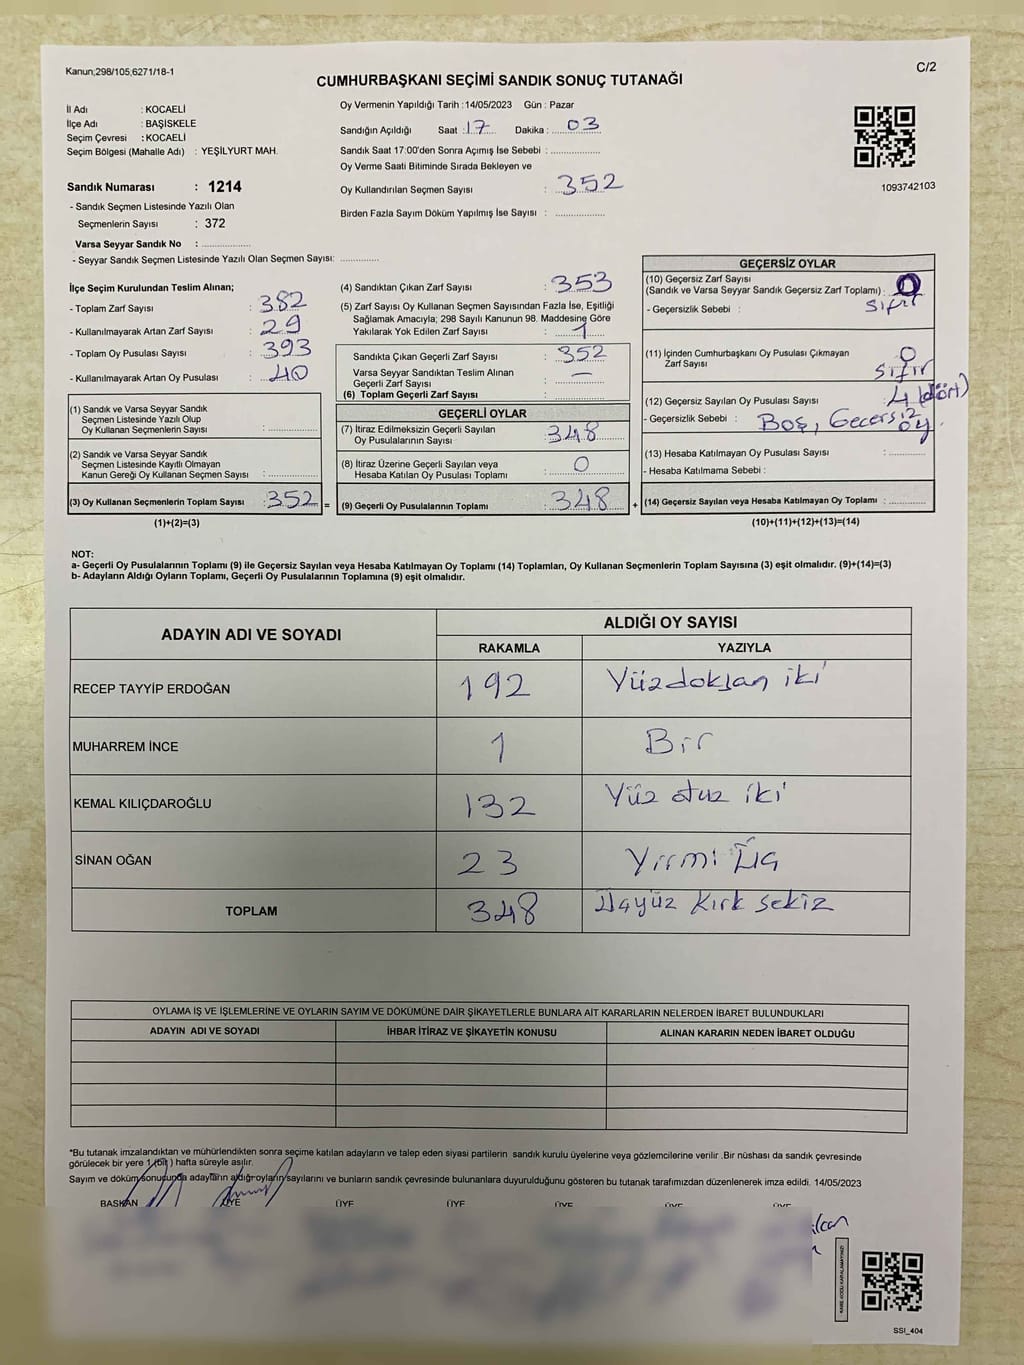 Kanun;298/105;6271/18-1
C/2
CUMHURBAŞKANI SEÇİMİ SANDIK SONUÇ TUTANAĞI
İl Adı : KOCAELİ
İlçe Adı : BAŞİSKELE
Seçim Çevresi : KOCAELİ
Seçim Bölgesi (Mahalle Adı) : YEŞİLYURT MAH.
Sandık Numarası : 1214
- Sandık Seçmen Listesinde Yazılı Olan
Seçmenlerin Sayısı : 372
Varsa Seyyar Sandık No :
- Seyyar Sandık Seçmen Listesinde Yazılı Olan Seçmen Sayısı:
Oy Vermenin Yapıldığı Tarih :14/05/2023 Gün : Pazar
Sandığın Açıldığı Saat : 17 Dakika : 03
Sandık Saat 17:00'den Sonra Açımış İse Sebebi :
Oy Verme Saati Bitiminde Sırada Bekleyen ve
Oy Kullandırılan Seçmen Sayısı : 352
Birden Fazla Sayım Döküm Yapılmış İse Sayısı :
1093742103
İlçe Seçim Kurulundan Teslim Alınan;
- Toplam Zarf Sayısı : 382
- Kullanılmayarak Artan Zarf Sayısı : 29
- Toplam Oy Pusulası Sayısı : 393
- Kullanılmayarak Artan Oy Pusulası : 40
(1) Sandık ve Varsa Seyyar Sandık
Seçmen Listesinde Yazılı Olup
Oy Kullanan Seçmenlerin Sayısı :
(2) Sandık ve Varsa Seyyar Sandık
Seçmen Listesinde Kayıtlı Olmayan
Kanun Gereği Oy Kullanan Seçmen Sayısı :
(3) Oy Kullanan Seçmenlerin Toplam Sayısı : 352 =
(1)+(2)=(3)
(4) Sandıktan Çıkan Zarf Sayısı : 353
(5) Zarf Sayısı Oy Kullanan Seçmen Sayısından Fazla İse, Eşitliği
Sağlamak Amacıyla; 298 Sayılı Kanunun 98. Maddesine Göre
Yakılarak Yok Edilen Zarf Sayısı : 1
Sandıkta Çıkan Geçerli Zarf Sayısı : 352
Varsa Seyyar Sandıktan Teslim Alınan
Geçerli Zarf Sayısı : —
(6) Toplam Geçerli Zarf Sayısı :
GEÇERLİ OYLAR
(7) İtiraz Edilmeksizin Geçerli Sayılan
Oy Pusulalarının Sayısı : 348
(8) İtiraz Üzerine Geçerli Sayılan veya
Hesaba Katılan Oy Pusulası Toplamı : 0
(9) Geçerli Oy Pusulalarının Toplamı : 348 +
GEÇERSİZ OYLAR
(10) Geçersiz Zarf Sayısı
(Sandık ve Varsa Seyyar Sandık Geçersiz Zarf Toplamı) : 0
- Geçersizlik Sebebi : Sıfır
(11) İçinden Cumhurbaşkanı Oy Pusulası Çıkmayan
Zarf Sayısı : 0
Sıfır
(12) Geçersiz Sayılan Oy Pusulası Sayısı : 4 (dört)
- Geçersizlik Sebebi : Boş, Geçersiz oy.
(13) Hesaba Katılmayan Oy Pusulası Sayısı :
- Hesaba Katılmama Sebebi :
(14) Geçersiz Sayılan veya Hesaba Katılmayan Oy Toplamı :
(10)+(11)+(12)+(13)=(14)
NOT:
a- Geçerli Oy Pusulalarının Toplamı (9) ile Geçersiz Sayılan veya Hesaba Katılmayan Oy Toplamı (14) Toplamları, Oy Kullanan Seçmenlerin Toplam Sayısına (3) eşit olmalıdır. (9)+(14)=(3)
b- Adayların Aldığı Oyların Toplamı, Geçerli Oy Pusulalarının Toplamına (9) eşit olmalıdır.
ADAYIN ADI VE SOYADI
ALDIĞI OY SAYISI
RAKAMLA YAZIYLA
RECEP TAYYİP ERDOĞAN 192 Yüzdoksan iki
MUHARREM İNCE 1 Bir
KEMAL KILIÇDAROĞLU 132 Yüz otuz iki
SİNAN OĞAN 23 Yirmi Üç
TOPLAM 348 Üçyüz Kırk sekiz
OYLAMA İŞ VE İŞLEMLERİNE VE OYLARIN SAYIM VE DÖKÜMÜNE DAİR ŞİKAYETLERLE BUNLARA AİT KARARLARIN NELERDEN İBARET BULUNDUKLARI
ADAYIN ADI VE SOYADI İHBAR İTİRAZ VE ŞİKAYETİN KONUSU ALINAN KARARIN NEDEN İBARET OLDUĞU
*Bu tutanak imzalandıktan ve mühürlendikten sonra seçime katılan adayların ve talep eden siyasi partilerin sandık kurulu üyelerine veya gözlemcilerine verilir .Bir nüshası da sandık çevresinde
görülecek bir yere 1 (bir) hafta süreyle asılır.
Sayım ve döküm sonucunda adayların aldığı oyların sayılarını ve bunların sandık çevresinde bulunanlara duyurulduğunu gösteren bu tutanak tarafımızdan düzenlenerek imza edildi. 14/05/2023
BAŞKAN ÜYE ÜYE ÜYE ÜYE ÜYE ÜYE
SSI_404